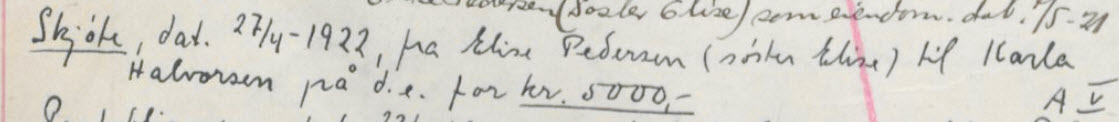 (Søster Elise) som eiendom. dat. 1/5-21
Skjöte, dat. 27/4-1922, fra Elise Pedersen (söster Elise) til Karla
Halvorsen på d.e. for kr. 5000,-
A V